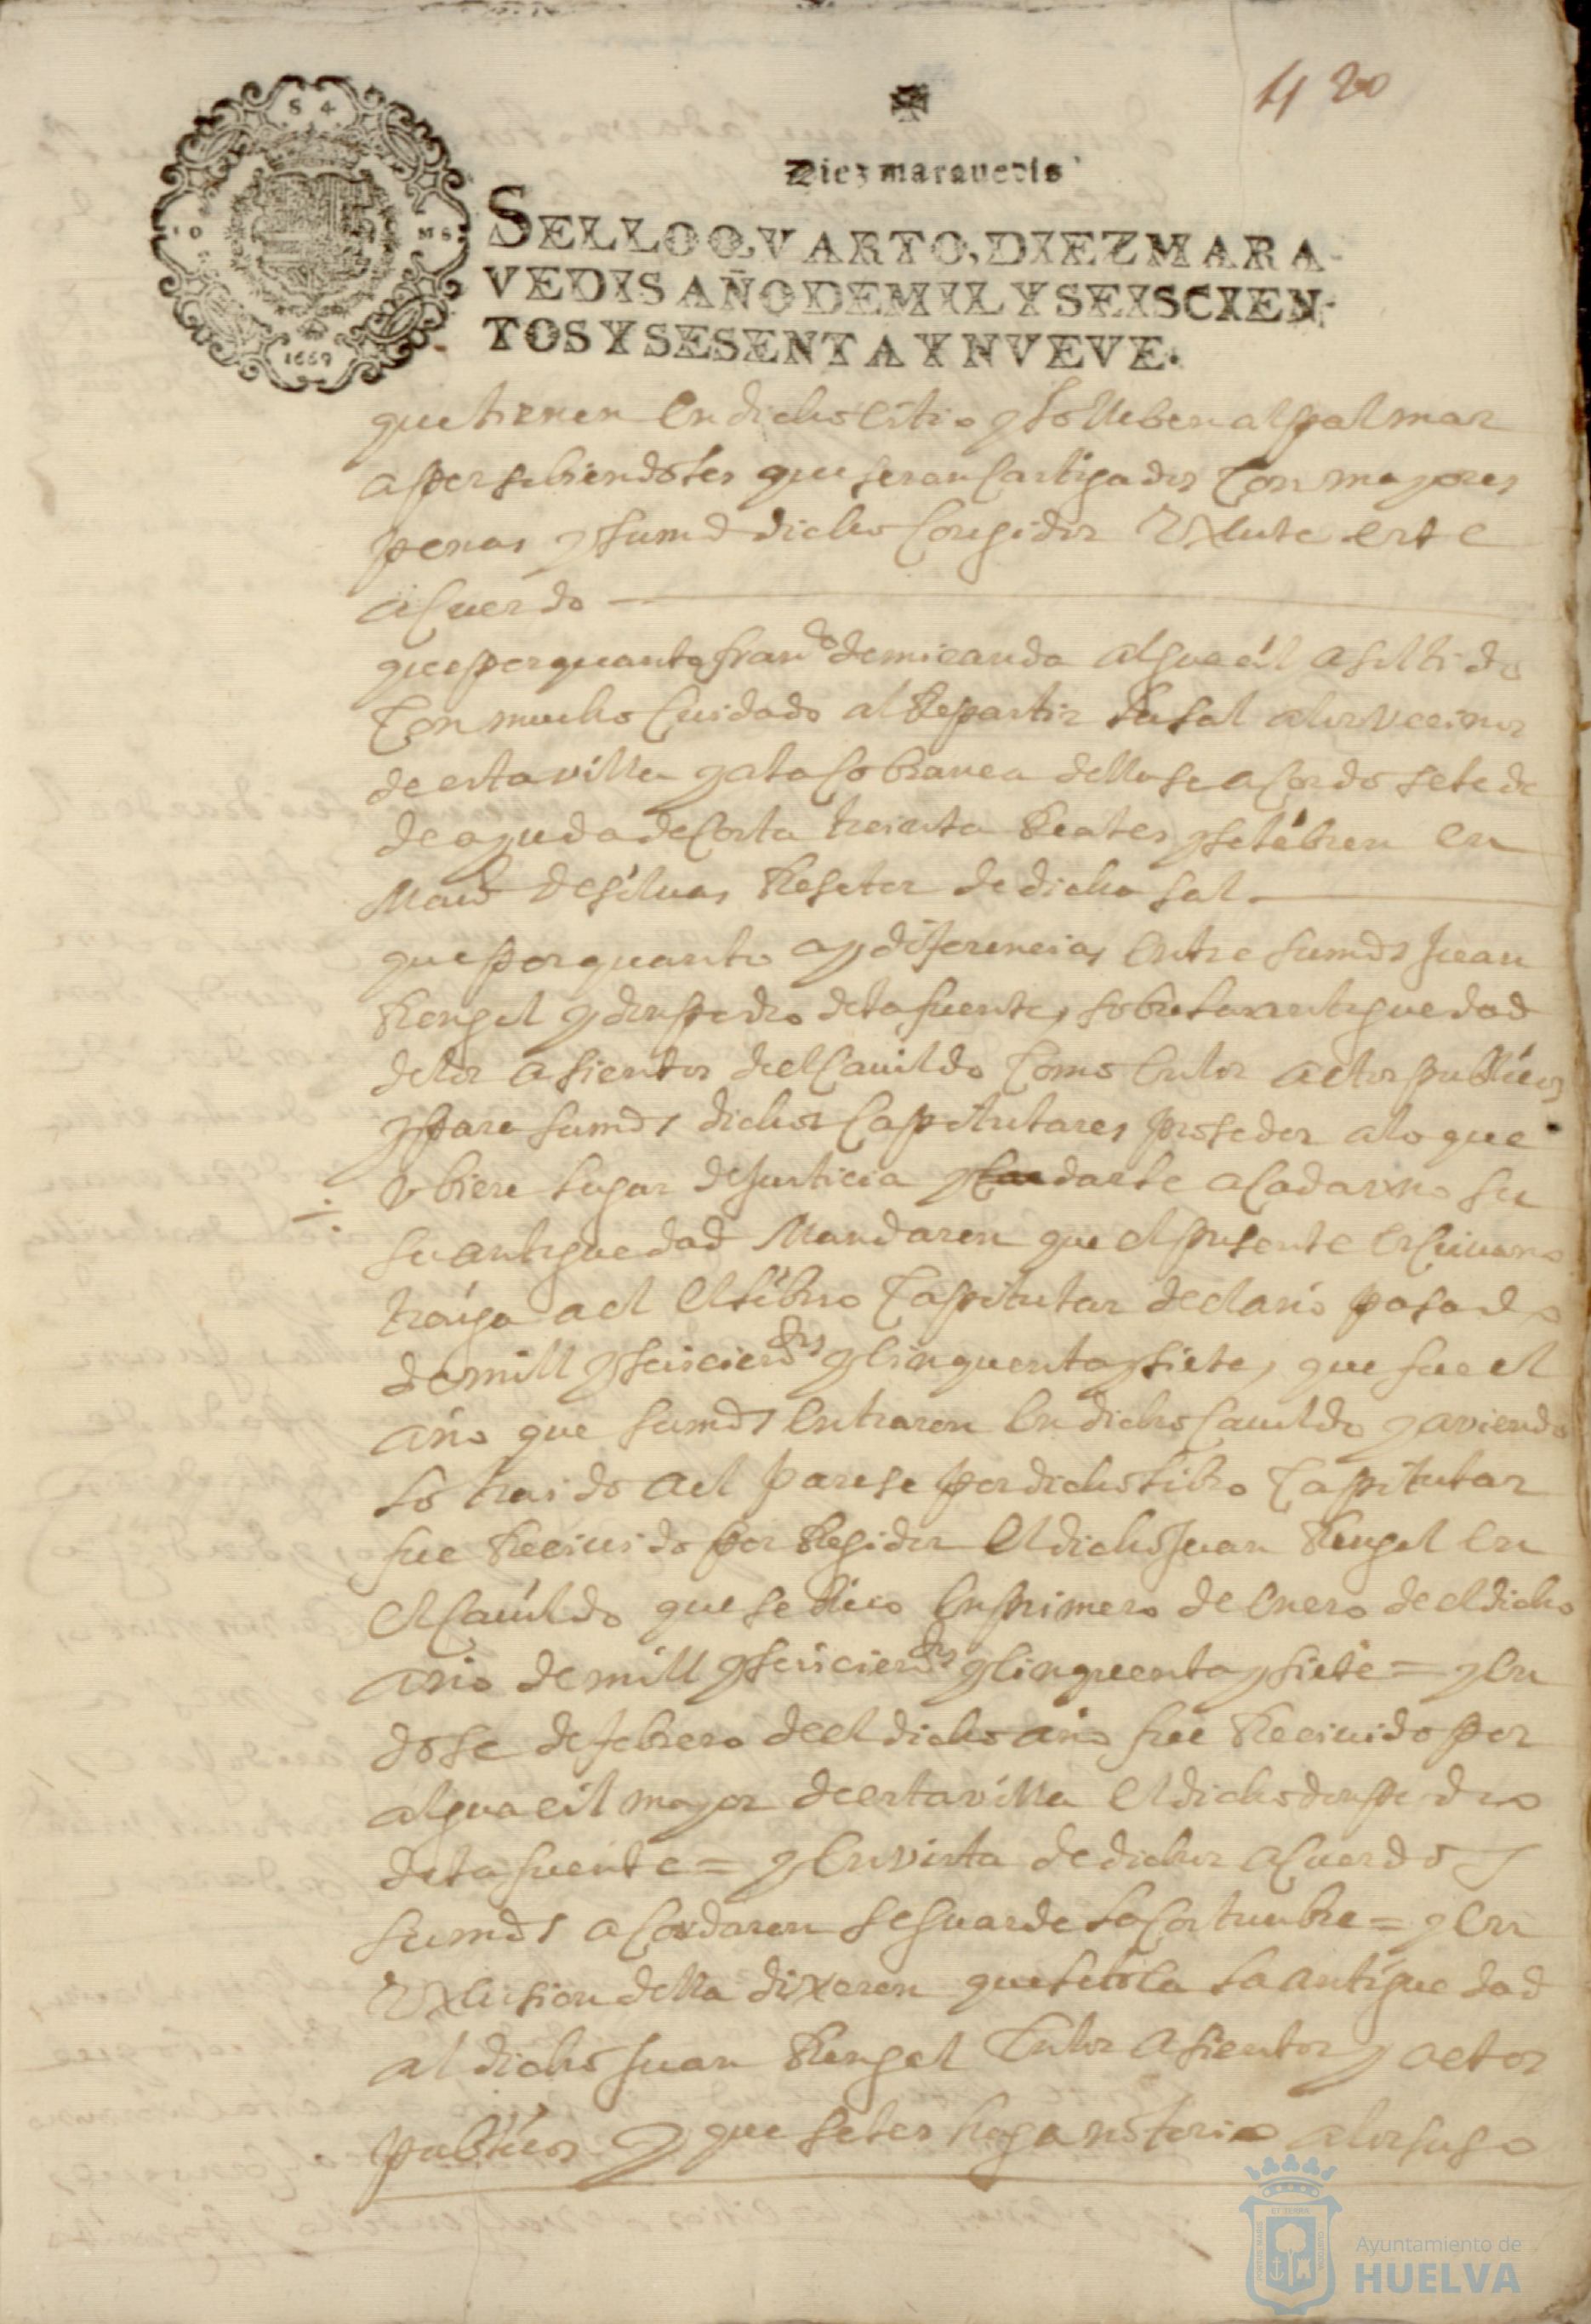 420
S 4
1O
MS
1669
Diez maravedis
SELLO QVARTO, DIEZ MARA-
VEDIS AÑO DE MIL Y SEISCIEN-
TOS Y SESENTA Y NVEVE.
que tienen en dicho citio y lo lleben al palmar
apersibiendoles que seran Castigados Con mayores
penas y sumd dicho Coregidor exsute este
aCuerdo
que por quanto franco de miranda alguacil a asistido
Con mucho Cuidado al Repartir la sal a los vecinos
de esta villa y a la Cobranca della se aCordo se le de
de ayuda de Costa treinta Reales y se libren en
Manl de siluas Resetor de dicha sal
que por quanto ay diferencias entre sumds Juan
Rengel y don pedro de la fuente, sobre la antiguedad
de los asientos del Cauildo Como en los actos publicos
y para sumds dichos Capitulares proseder a lo que
vbiere lugar de Justicia y darle a Cada vno su
su antiguedad Mandaron que el presente esCriuano
traiga a el el libro Capitular de el año pasado
de mill y seiscientos y cinquenta y siete, que fue el
año que sumds entraron en dicho Cauildo y aviendo
lo traido a el parese por dicho libro Capitular
fue Reciuido por Regidor el dicho Juan Rengel en
el Cauildo que se hico en primero de enero de el dicho
año de mill y seiscientos y cinquenta y siete = y en
dose de febrero de el dicho año fue Reciuido por
alguacil mayor de esta villa el dicho don pedro
de la fuente = y en vista de dichos aCuerdos
sumds aCordaron se guarde la Costumbre = y en
exsecusion della dixeron que le toca la antiguedad
al dicho Juan Rengel en los asientos y actos
publicos y que se les haga notorio a los suso
Ayuntamiento de
HUELVA